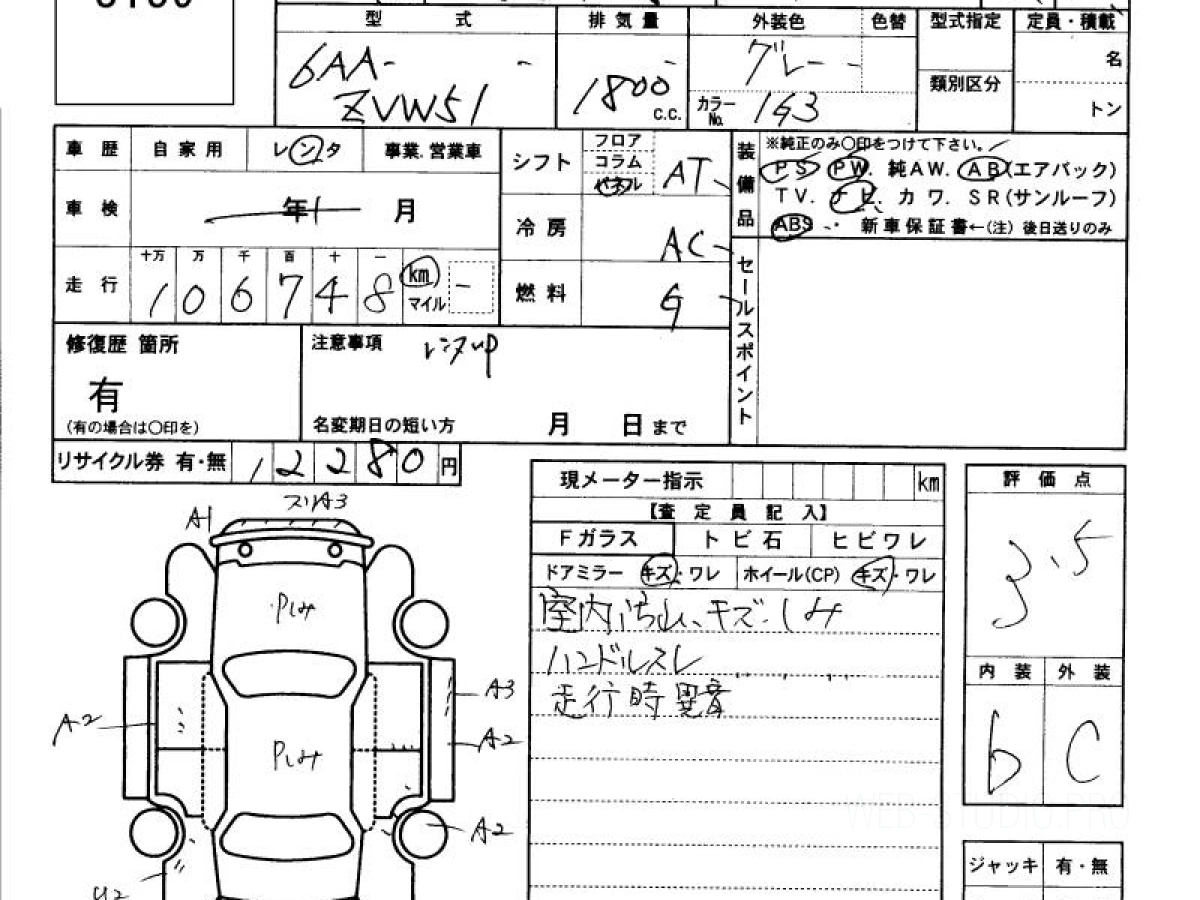 型 式 排気量 外装色 色替 型式指定 定員・積載
6AA- - 1800 グレー 名
ZVW51 c.c. カラーNo. 1G3 類別区分 トン
車歴 自家用 レンタ 事業.営業車 シフト フロア コラム パネル AT
装備品 ※純正のみ〇印をつけて下さい。
PS PW. 純AW. AB(エアバック)
TV. ナビ. カワ. SR(サンルーフ)
ABS 新車保証書←(注) 後日送りのみ
車検 年 月 冷房 AC
走行 十万 万 千 百 十 一
106748 km マイル 燃料 G
セールスポイント
修復歴 箇所 注意事項
有
(有の場合は〇印を) 名変期日の短い方 月 日 まで
リサイクル券 有・無 12280 円
現メーター指示 km 評価点
【査定員記入】
Fガラス トビ石 ヒビワレ 3.5
ドアミラー キズ・ワレ ホイール(CP) キズ・ワレ
室内汚れ、キズ.しみ
ハンドルスレ
走行時異音
内装 外装
b C
スリA3
A1
Pしみ
A3
A2
Pしみ
A2
A2
U2
ジャッキ 有・無
WEB-STUDIO.PRO